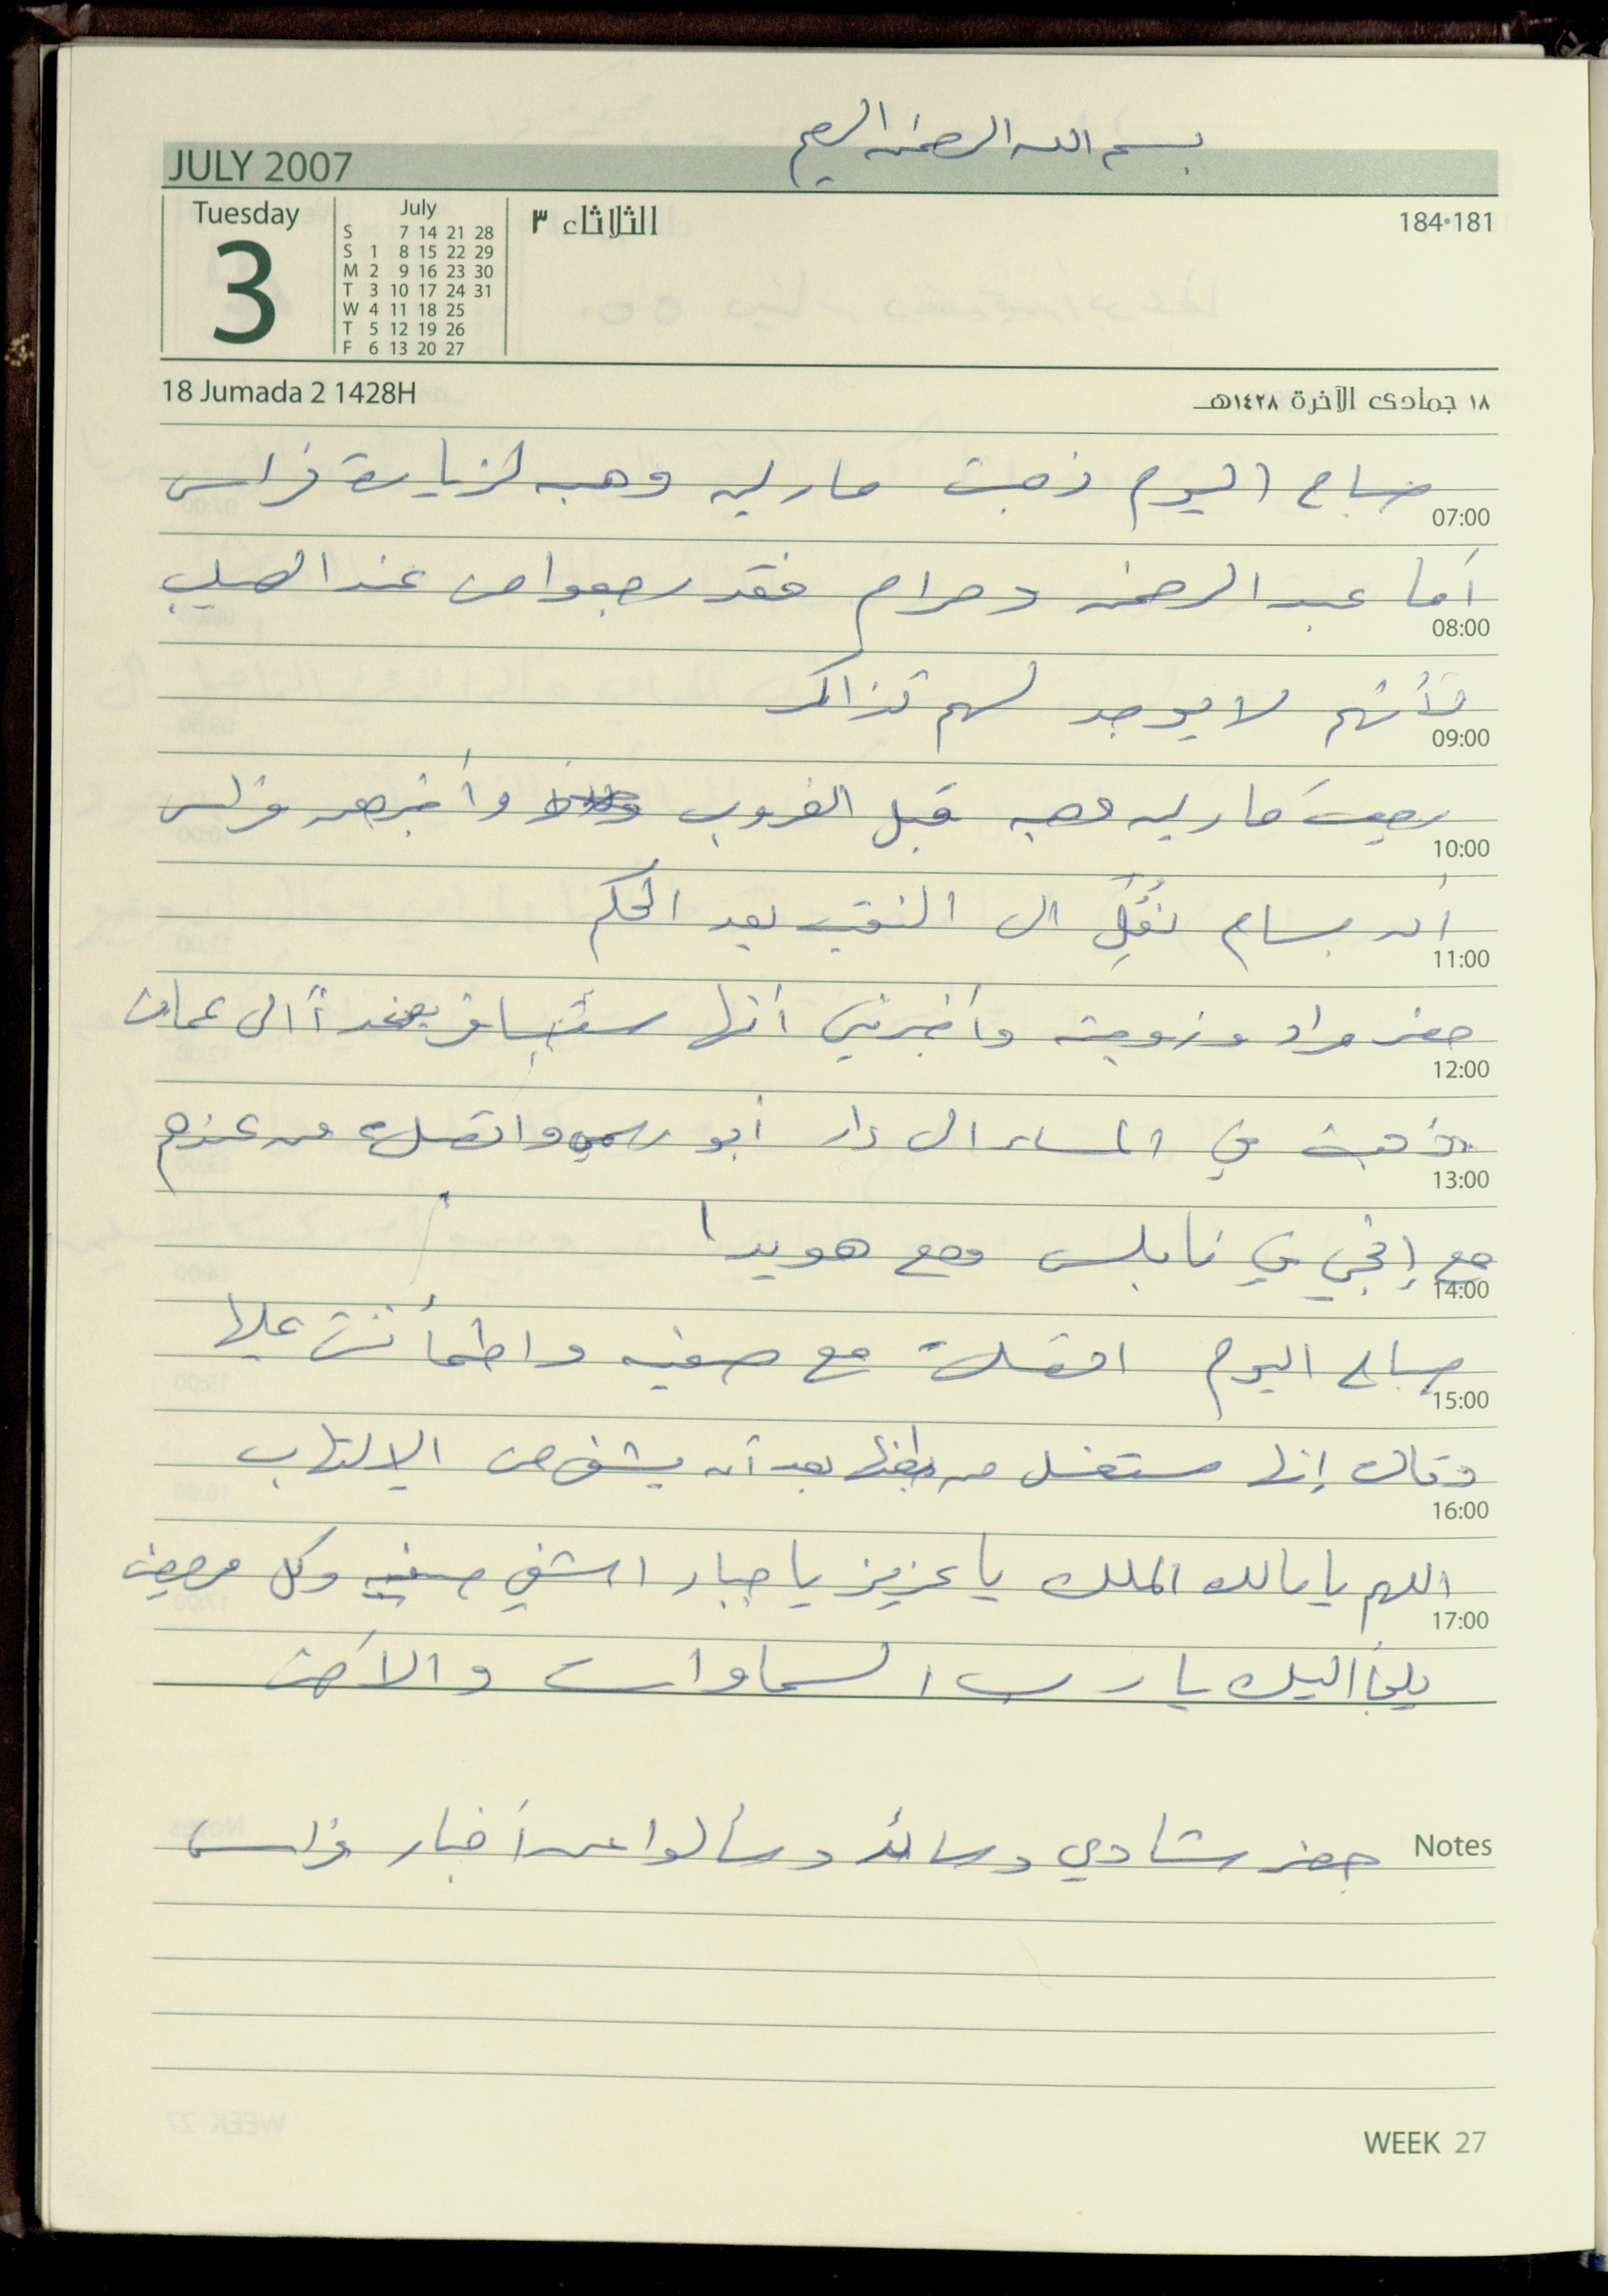 بسم الله الرحمن الرحيم
JULY 2007
Tuesday
3
July
S 7 14 21 28
S 1 8 15 22 29
M 2 9 16 23 30
T 3 10 17 24 31
W 4 11 18 25
T 5 12 19 26
F 6 13 20 27
الثلاثاء ٣
184•181
18 Jumada 2 1428H
١٨ جمادى الآخرة ١٤٢٨هـ
صباح اليوم ذهبت ماريه وهبه لزيارة فراس
07:00
أما عبد الرحمن ومرام فقد رجعوا من عند الصليب
08:00
لأنهم لا يوجد لهم تذاكر
09:00
رجعت ماريه وهبه قبل الغروب وأخبرهم فراس
10:00
أن بسام نُقِلَ الى النقب بعد الحكم
11:00
حضر مراد وزوجته وأخبرتني أنها ستسافر غداً الى عمان
12:00
ذهبت في المساء الى دار أبو واتصلت من عندهم
13:00
مع إفتي في نابلس ومع هويدا
14:00
صباح اليوم اتصلت مع صفيه واطمأننت عليها
15:00
وقالت إنها ستغسل من بطنها بعد أن يشفى من الالتهاب
16:00
اللهم يا مالك الملك يا عزيز يا جبار اشفي صفيه وكل مريض
17:00
يلجأ اليك يا رب السماوات والارض
Notes
حضر شادي وسائد وسألوا عن أخبار فراس
WEEK 27